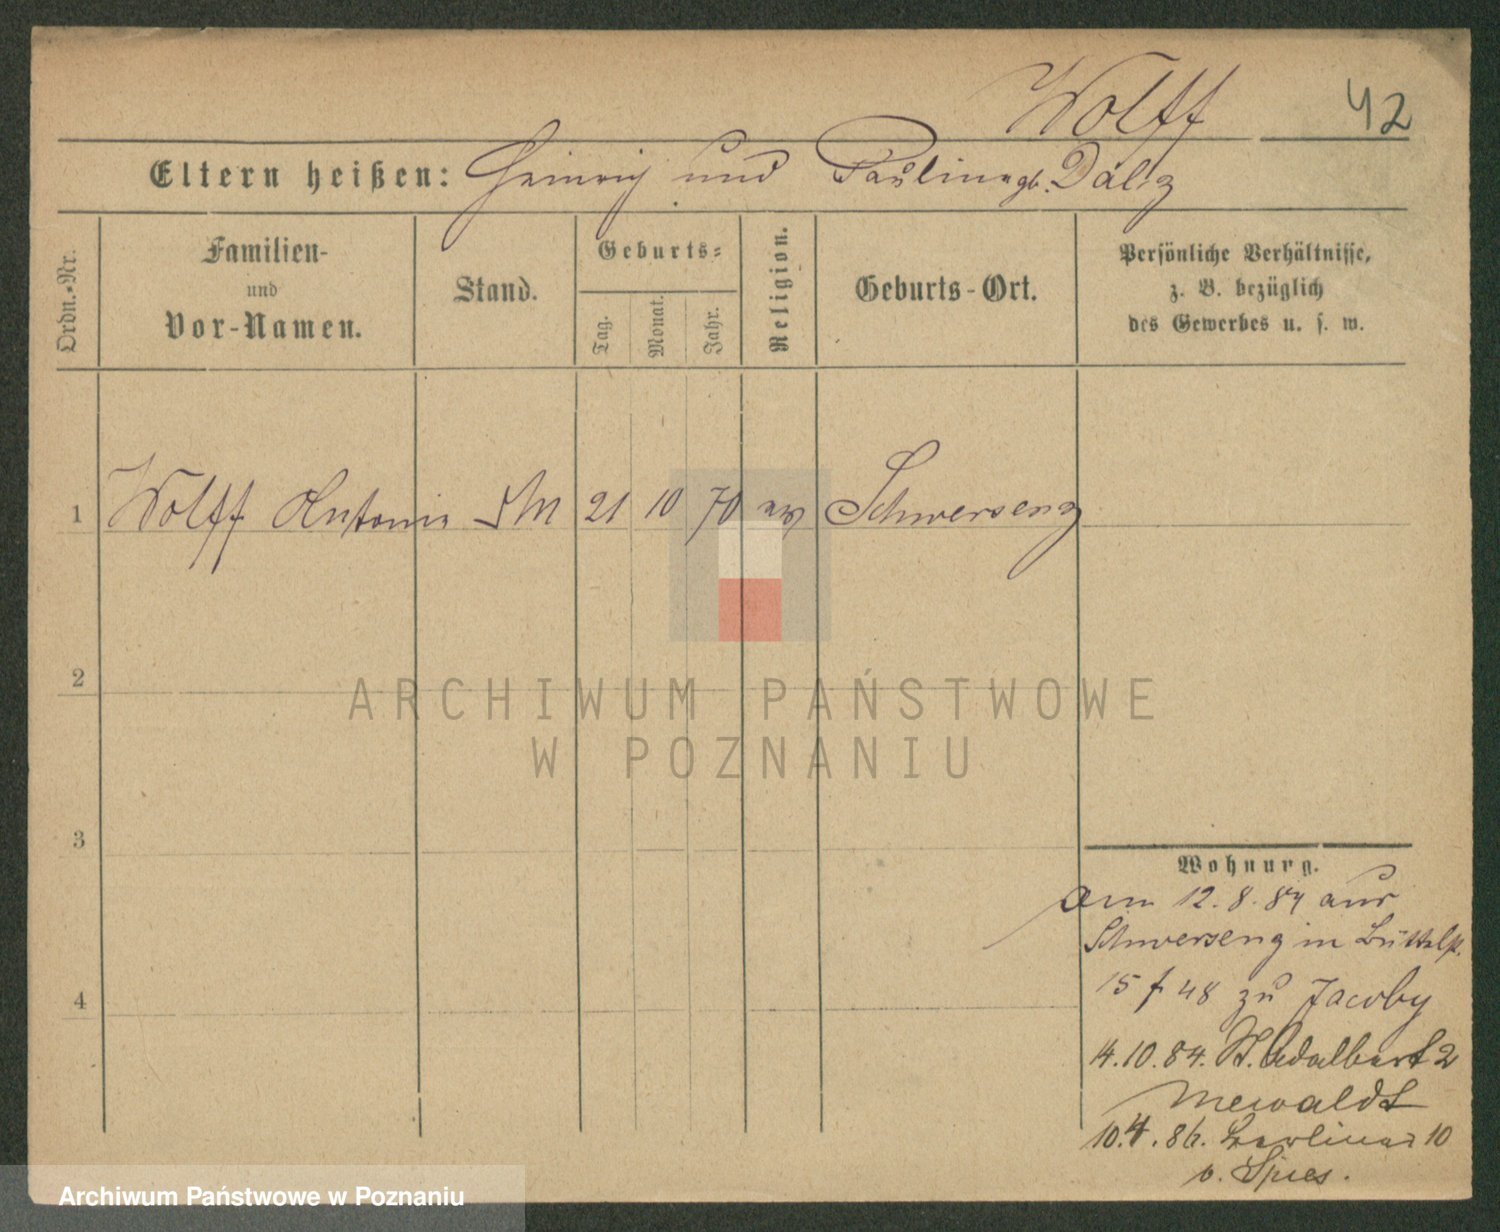 Wolff 42
Eltern heißen: Heinrich und Pauline gb. Dalig
Ordn.-Nr.
Familien-
und
Vor-Namen.
Stand.
Geburts-
Tag.
Monat.
Jahr.
Religion.
Geburts-Ort.
Persönliche Verhältnisse,
z. B. bezüglich
des Gewerbes u. s. w.
1 Wolff Antonie DM 21 10 70 ev Schwersenz
2
ARCHIWUM PAŃSTWOWE
W POZNANIU
3
Wohnung.
am 12.8.84 aus
Schwersenz in Büttelst.
4
15 f 48 zu Jacoby
14.10.84. St. Adalbert 2
Mewaldt
10.4.86. Berliner 10
b. Spies.
Archiwum Państwowe w Poznaniu